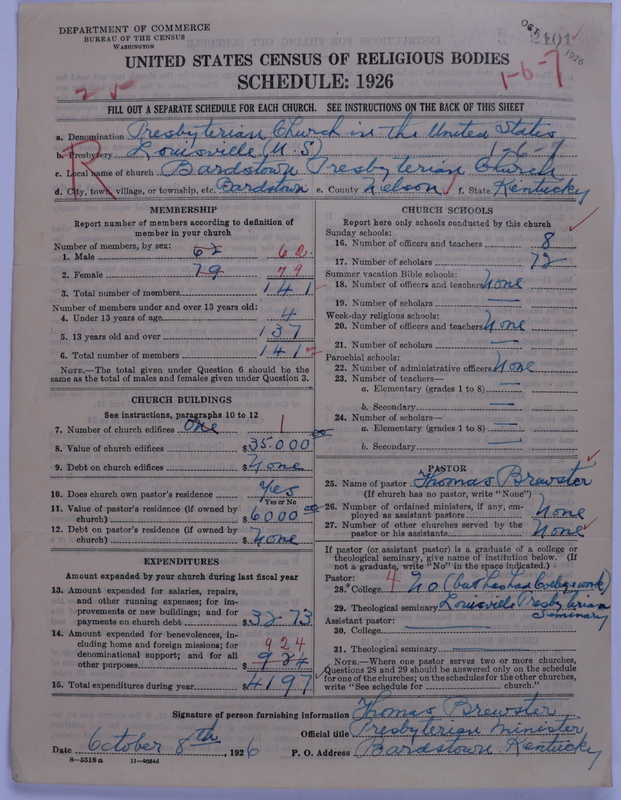 DEPARTMENT OF COMMERCE
BUREAU OF THE CENSUS
WASHINGTON
OCT 1926
2401
UNITED STATES CENSUS OF RELIGIOUS BODIES
SCHEDULE: 1926
1-6-7
FILL OUT A SEPARATE SCHEDULE FOR EACH CHURCH. SEE INSTRUCTIONS ON THE BACK OF THIS SHEET
R
a. Denomination Presbyterian Church in the United States
b. Presbytery Louisville (U.S) 1-6-7
c. Local name of church Bardstown Presbyterian Church
d. City, town, village, or township, etc. Bardstown e. County Nelson f. State Kentucky
MEMBERSHIP
Report number of members according to definition of
member in your church
Number of members, by sex:
1. Male 62 62
2. Female 79 79
3. Total number of members 141
Number of members under and over 13 years old:
4. Under 13 years of age 4
5. 13 years old and over 137
6. Total number of members 141
NOTE.—The total given under Question 6 should be the
same as the total of males and females given under Question 3.
CHURCH BUILDINGS
See instructions, paragraphs 10 to 12
7. Number of church edifices one 1
8. Value of church edifices $35.000
9. Debt on church edifices $None
10. Does church own pastor's residence Yes
Yes or No
11. Value of pastor's residence (if owned by
church) $6000 00
12. Debt on pastor's residence (if owned by
church) $None
EXPENDITURES
Amount expended by your church during last fiscal year
13. Amount expended for salaries, repairs,
and other running expenses; for im-
provements or new buildings; and for
payments on church debt $3273
14. Amount expended for benevolences, in-
cluding home and foreign missions; for 924
denominational support; and for all
other purposes $924
15. Total expenditures during year $4197
CHURCH SCHOOLS
Report here only schools conducted by this church
Sunday schools:
16. Number of officers and teachers 8
17. Number of scholars 72
Summer vacation Bible schools:
18. Number of officers and teachers None
19. Number of scholars
Week-day religious schools:
20. Number of officers and teachers None
21. Number of scholars
Parochial schools:
22. Number of administrative officers None
23. Number of teachers—
a. Elementary (grades 1 to 8)
b. Secondary
24. Number of scholars—
a. Elementary (grades 1 to 8)
b. Secondary
PASTOR
25. Name of pastor Thomas Brewster
(If church has no pastor, write "None")
26. Number of ordained ministers, if any, em-
ployed as assistant pastors None
27. Number of other churches served by the
pastor or his assistants None
If pastor (or assistant pastor) is a graduate of a college or
theological seminary, give name of institution below. (If
not a graduate, write "No" in the space indicated.)
Pastor:
28. College 4 No (but has had College work)
29. Theological seminary Louisville Presbyterian
Seminary
Assistant pastor:
30. College
31. Theological seminary
NOTE.—Where one pastor serves two or more churches,
Questions 28 and 29 should be answered only on the schedule
for one of the churches; on the schedules for the other churches,
write "See schedule for church."
Signature of person furnishing information Thomas Brewster
Official title Presbyterian minister
Date October 8th, 1926 P. O. Address Bardstown Kentucky
8-5518a